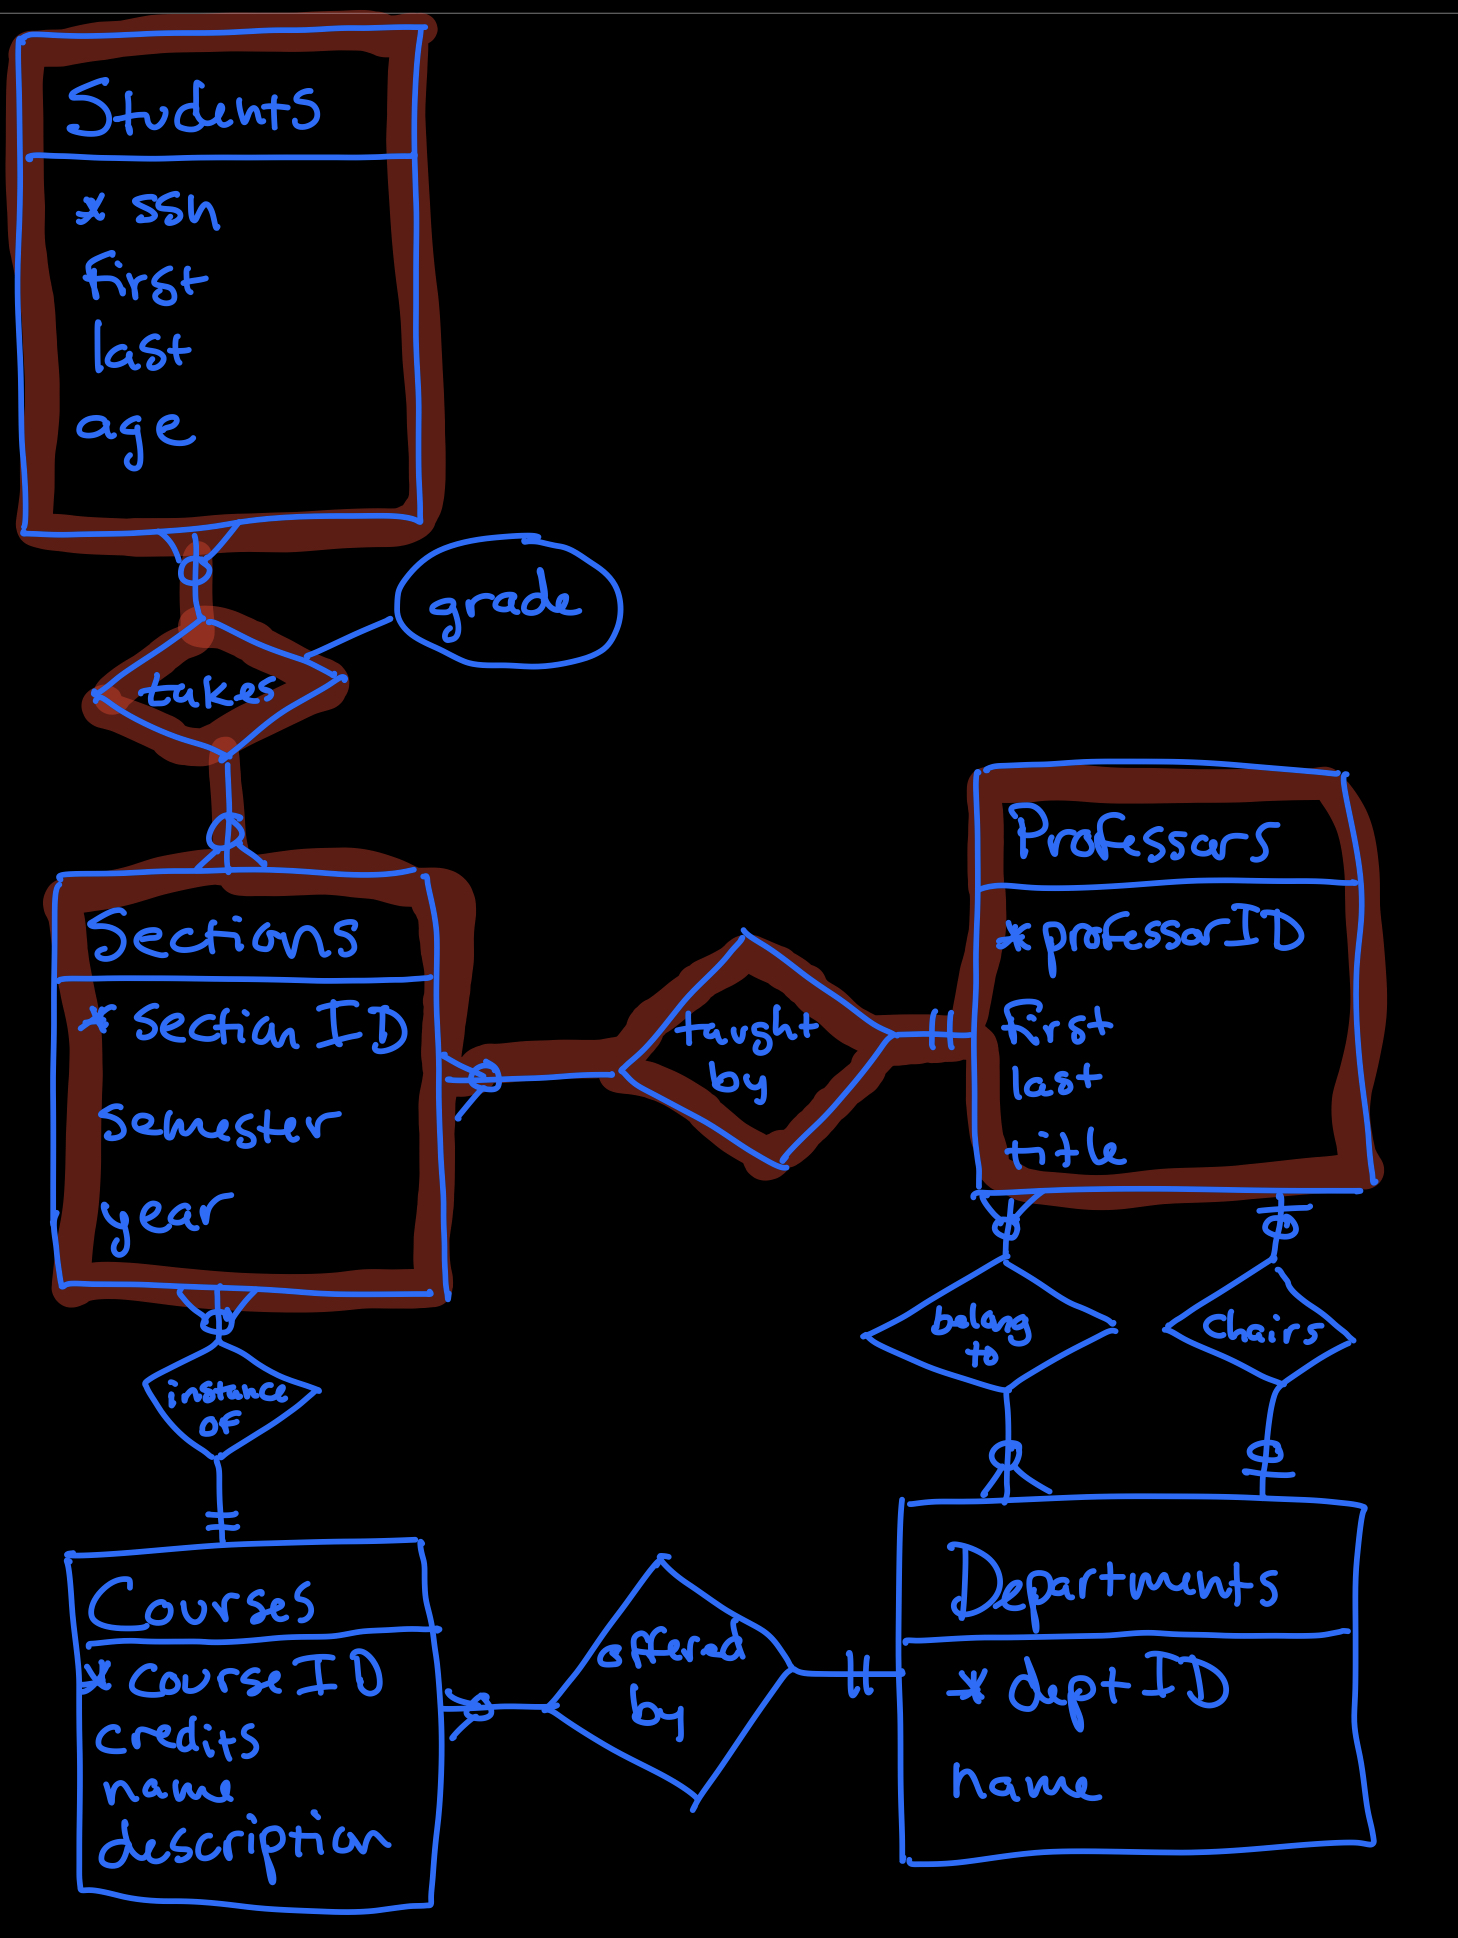 Students
* ssn
first
last
age
grade
takes
Sections
* section ID
semester
year
taught
by
Professors
* professorID
first
last
title
instance
of
belong
to
Chairs
Courses
* Course ID
credits
name
description
offered
by
Departments
* dept ID
name